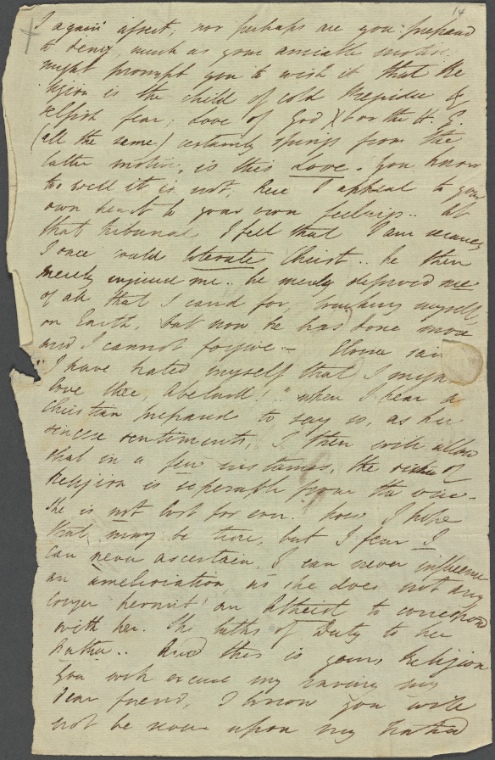 14
I again assert, nor perhaps are you prepared
to deny much as your amiable motives
might prompt you to wish it that Re
ligion is the child of cold prejudice &
selfish fear; Love of God X or the H. G.
(all the same) certainly springs from the
latter motive, is this Love. You know
too well it is not, here I appeal to your
own heart & your own feelings.. At
that tribunal I feel that I am secure
I once could tolerate Christ.. he then
merely injured me.. he merely deprived me
of all that I cared for, touching myself
on Earth, but now he has done more
and I cannot forgive - Eloisa said
"I have hated myself that I might
love thee, Abelard!" when I hear a
Christian prepared to say so, as her
sincere sentiments, I then will allow
that in a few instances, the of
Religion is separable from the vice -
She is not lost for ever. how I hope
that may be true, but I fear I
can never ascertain, I can never influence
an amelioration, as she does not any
longer permit an Atheist to correspond
with her. She talks of Duty to her
Father.. And this is your Religion
You will excuse my raving my
dear friend, I know you will
not be severe upon my hatred